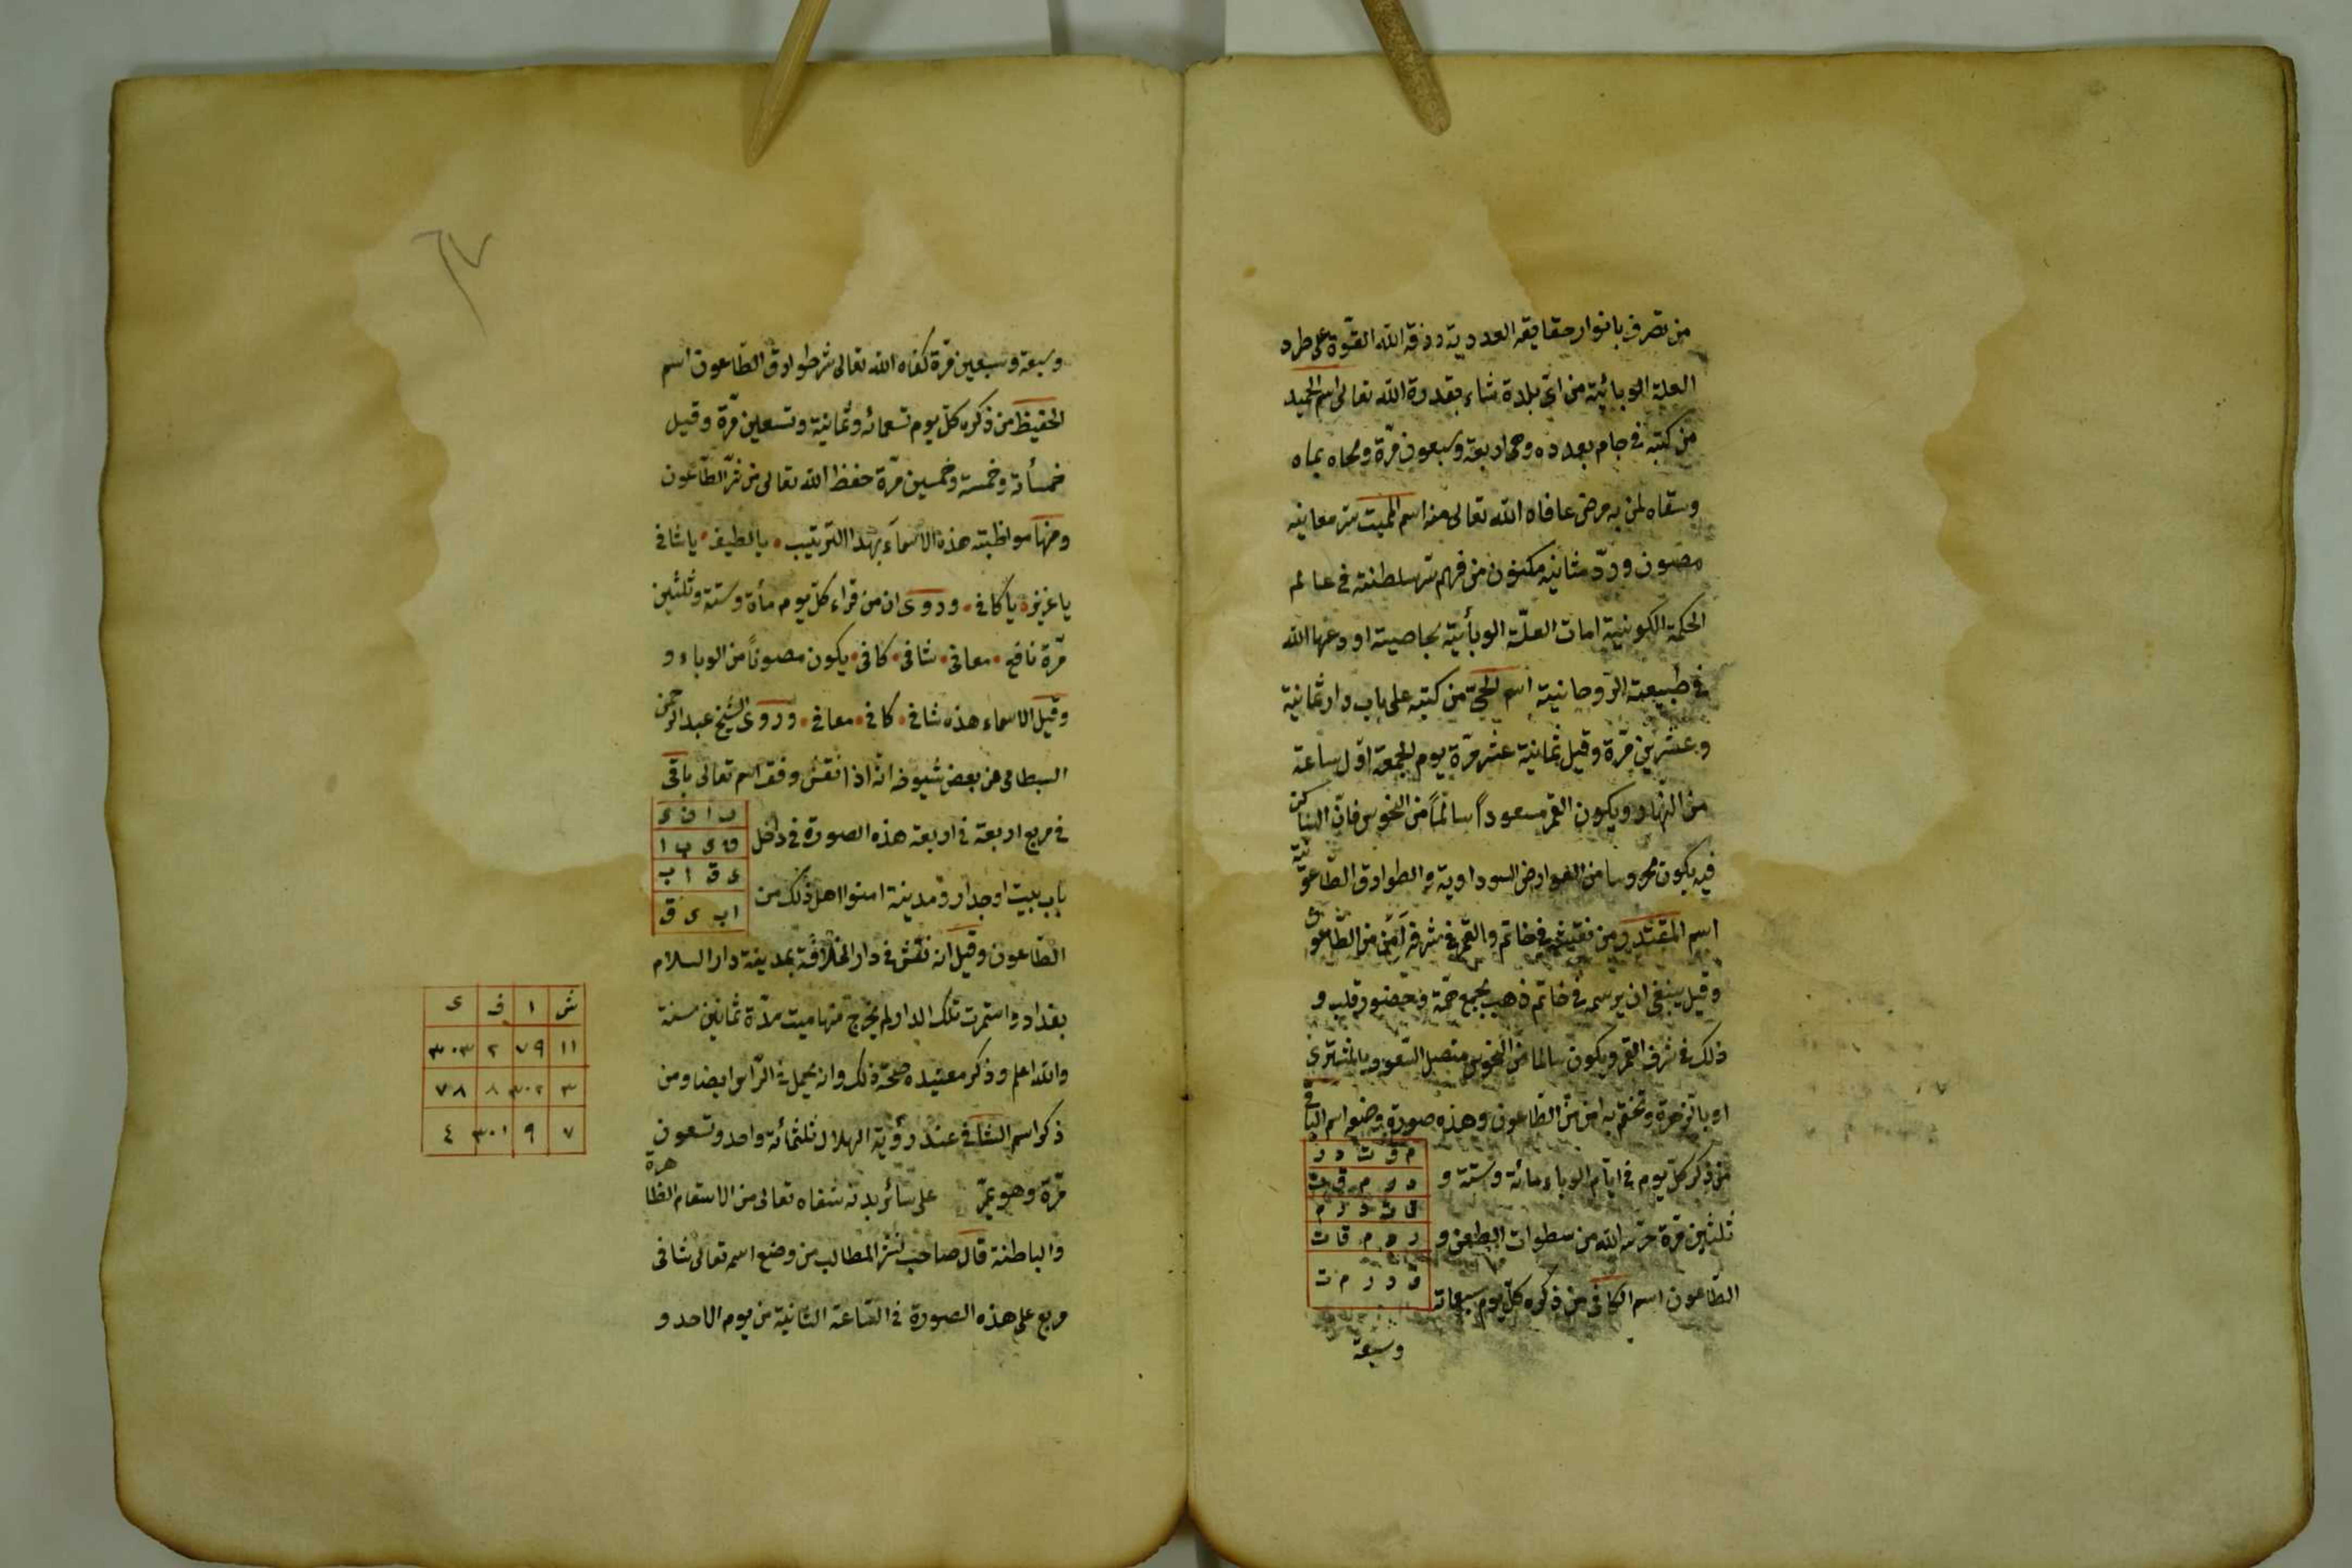 من تصرف بانوار حقايقه العددية رزقه الله القوّة على طرد
العلة الوبائية من اىّ بلدة شاء بقدرة الله تعالى اسم الحميد
من كتبه فى جام بعدده وهى اربعة وسبعون مرّة ومحاه بماه
وسقاه لمن به مرض عافاه الله تعالى منه اسم المميت سر معانيه
مصون ودرّ مثانيه مكنون من فهم سر سلطنته فى عالم
الحكمة الكونية امات العلّة الوبأئية بخاصية اودعها الله
فى طبيعته الروحانية اسم الحىّ من كتبه على باب دار ثمانية
وعشرين مرّة وقيل ثمانية عشر مرّة يوم الجمعة اوّل ساعة
من النهار ويكون القمر مسعوداً سالماً من النحوس فان الساكن
فيه يكون محروسا من العوارض السوداوية و الطوارق الطاعونية
اسم المقتدر من نقشه فى خاتم والقمر فى شرفه اَمن من الطاعون
وقيل ينبغى ان يرسم فى خاتم ذهب بجمع همّة وحضور قلب و
ذلك فى شرف القمر ويكون سالما من النحوس متصل السعود بالمشترى
او بالزهرة وتختم به امن من الطاعون وهذه صورة وضعه اسم الباقى
م ق ت د ر
د ر م ق ت
ق ت د ر م
ر م ق ت
ق د ر م ت
من ذكر كلّ يوم فى ايّام الوباء مائة وستة و
ثلثين مرّة حرّسه الله من سطوات الطعن و
الطاعون اسم الكافى من ذكره كلّ يوم سبعمائة
وسبعة
وسبعة وسبعين مرّة كفاه الله تعالى شر طوارق الطاعون اسم
الحفيظ من ذكره كلّ يوم تسعمائه وثمانية وتسعين مرّة وقيل
خمسأئة وخمسة وخمسين مرّة حفظ الله تعالى من شرّ الطاعون
ومنها مواظبته هذه الاسمآء بهذا الترتيب • يا لطيف • يا شافى
يا عزيز • يا كافى • وروى ان من قراء كلّ يوم مأة وستة وثلثين
مرّة نافع • معافى • شافى • كافى • يكون مصوناً من الوباء و
وقيل الاسماء هذه شافى • كافى • معافى • وروى الشيخ عبد الرحمن
البسطامى عن بعض شيوخه انه اذا نقش وفق اسم تعالى باقى
فى مربع اربعة فى اربعة هذه الصورة فى داخل
ب ا ق ى
ق ى ب ا
ى ق ا ب
ا ب ى ق
باب بيت او جدار ومدينة امنوا اهل ذلك من
الطاعون وقيل انه نقش فى دار الخلافة بمدينة دار السلام
بغداد واستمرت تلك الدار لم يخرج منها ميت مدّة ثمانين سنة
والله اعلم وذكر معتيده صحّة ذلك وانه يحمل فى الرّاس ايضا ومن
ذكر اسم الشافى عند رؤية الهلال ثلثمائة واحد وتسعون
مرّة وهو يمرّ على سائر بدنه شفاه تعالى من الاسقام الظاهرة
والباطنة قال صاحب المطالب من وضع اسم تعالى شافى
مربع على هذه الصورة فى الساعة الثانية من يوم الاحد و
ش ا ف ى
١١ ٧٩ ٢ ٣٠٣
٣ ٣٠٢ ٨ ٧٨
٧ ٩ ٣٠١ ٤